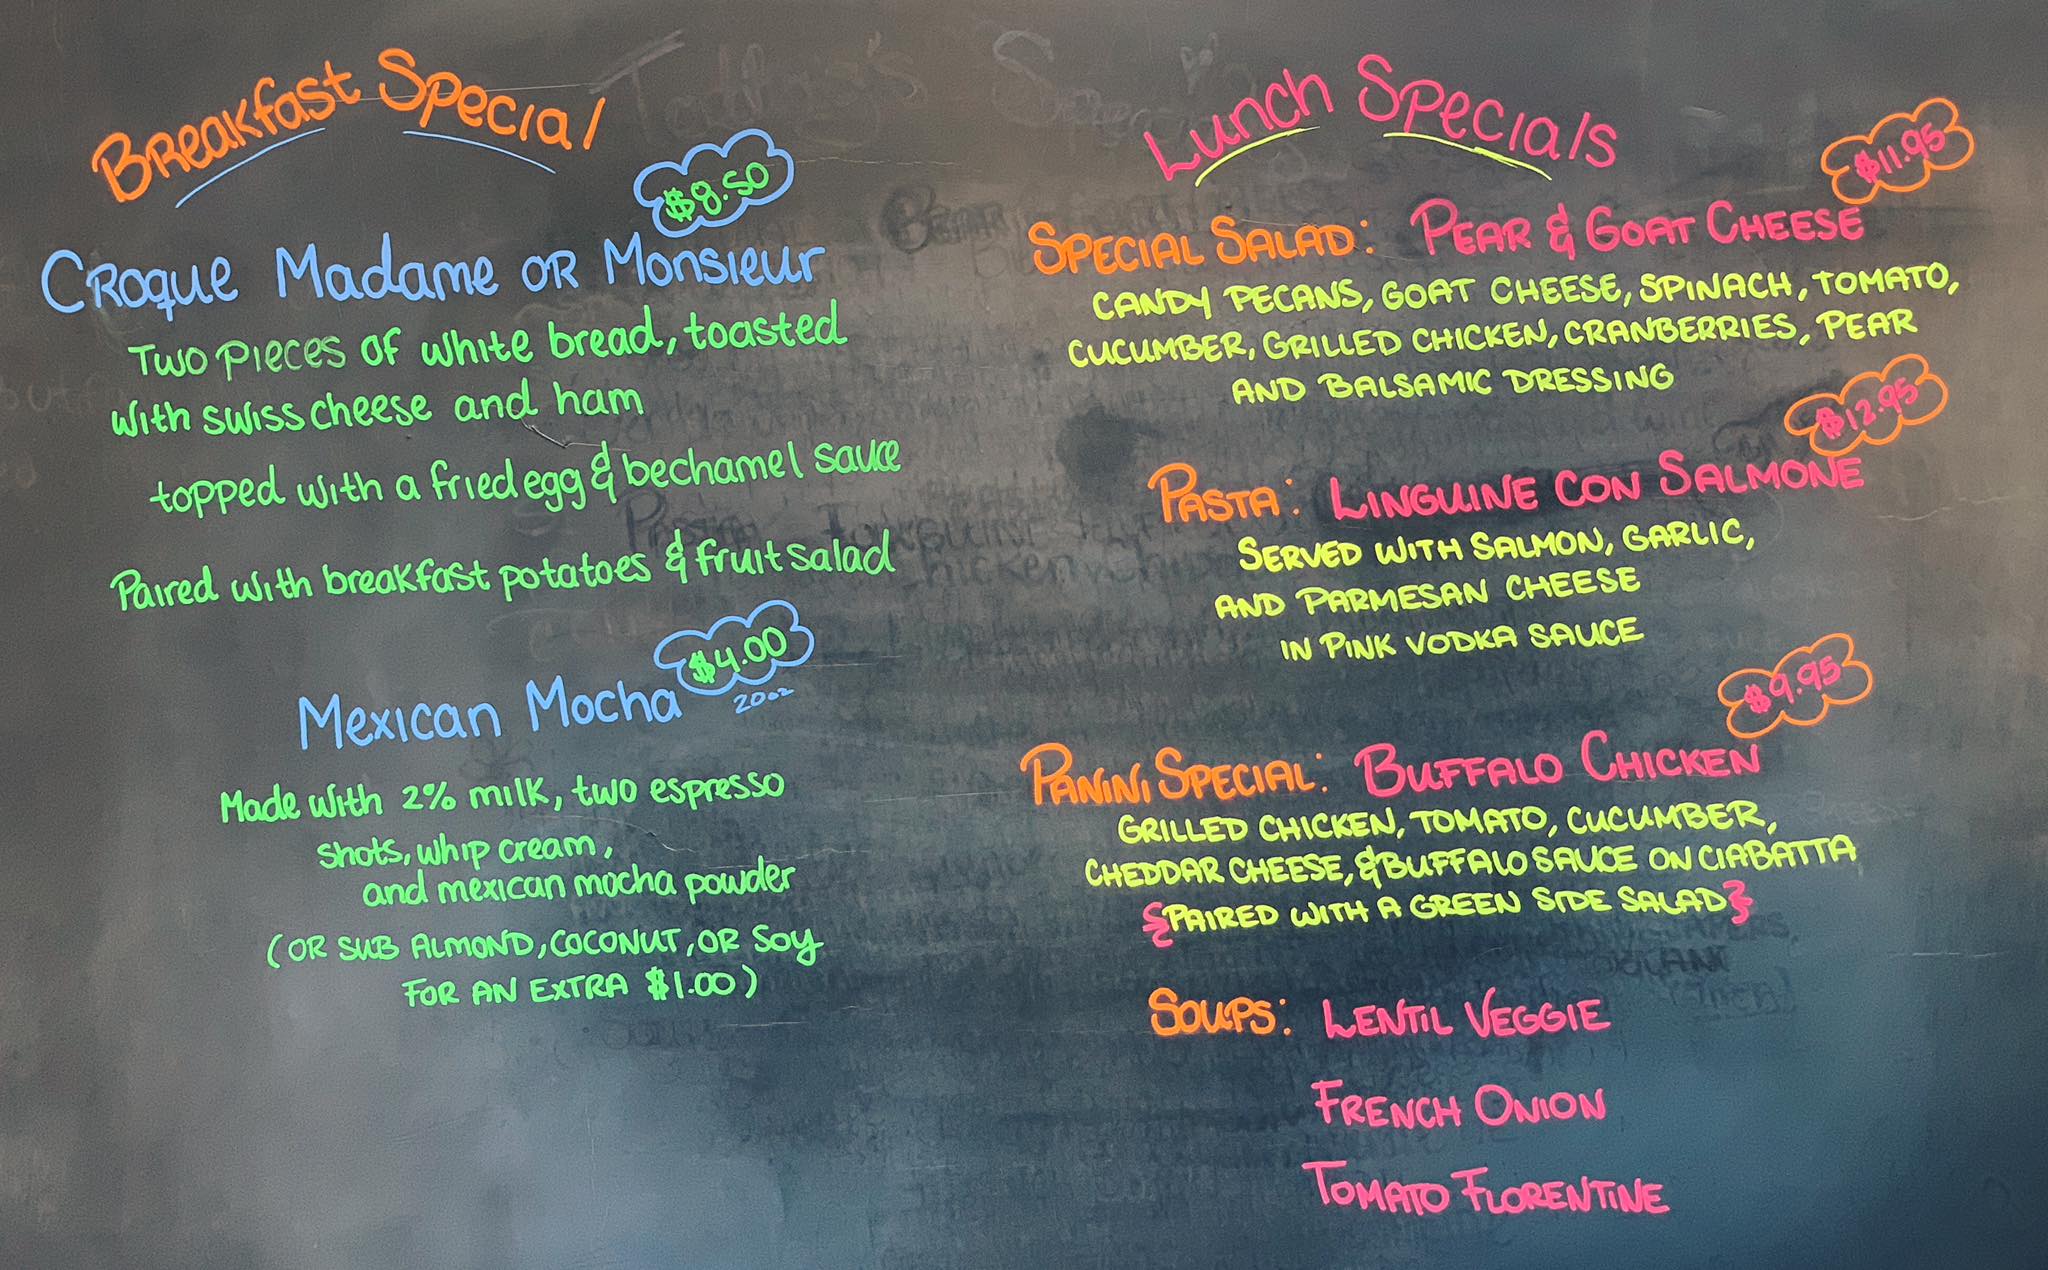 Breakfast Special
$8.50
Croque Madame or Monsieur
Two pieces of white bread, toasted
with swiss cheese and ham
topped with a fried egg & bechamel sauce
Paired with breakfast potatoes & fruit salad
$4.00
Mexican Mocha 20oz
Made with 2% milk, two espresso
shots, whip cream,
and mexican mocha powder
(OR SUB ALMOND, COCONUT, OR SOY
FOR AN EXTRA $1.00)
Lunch Specials
$11.95
SPECIAL SALAD: PEAR & GOAT CHEESE
CANDY PECANS, GOAT CHEESE, SPINACH, TOMATO,
CUCUMBER, GRILLED CHICKEN, CRANBERRIES, PEAR
AND BALSAMIC DRESSING
$12.95
PASTA: LINGUINE CON SALMONE
SERVED WITH SALMON, GARLIC,
AND PARMESAN CHEESE
IN PINK VODKA SAUCE
$9.95
PANINI SPECIAL: BUFFALO CHICKEN
GRILLED CHICKEN, TOMATO, CUCUMBER,
CHEDDAR CHEESE, & BUFFALO SAUCE ON CIABATTA
{PAIRED WITH A GREEN SIDE SALAD}
SOUPS: LENTIL VEGGIE
FRENCH ONION
TOMATO FLORENTINE